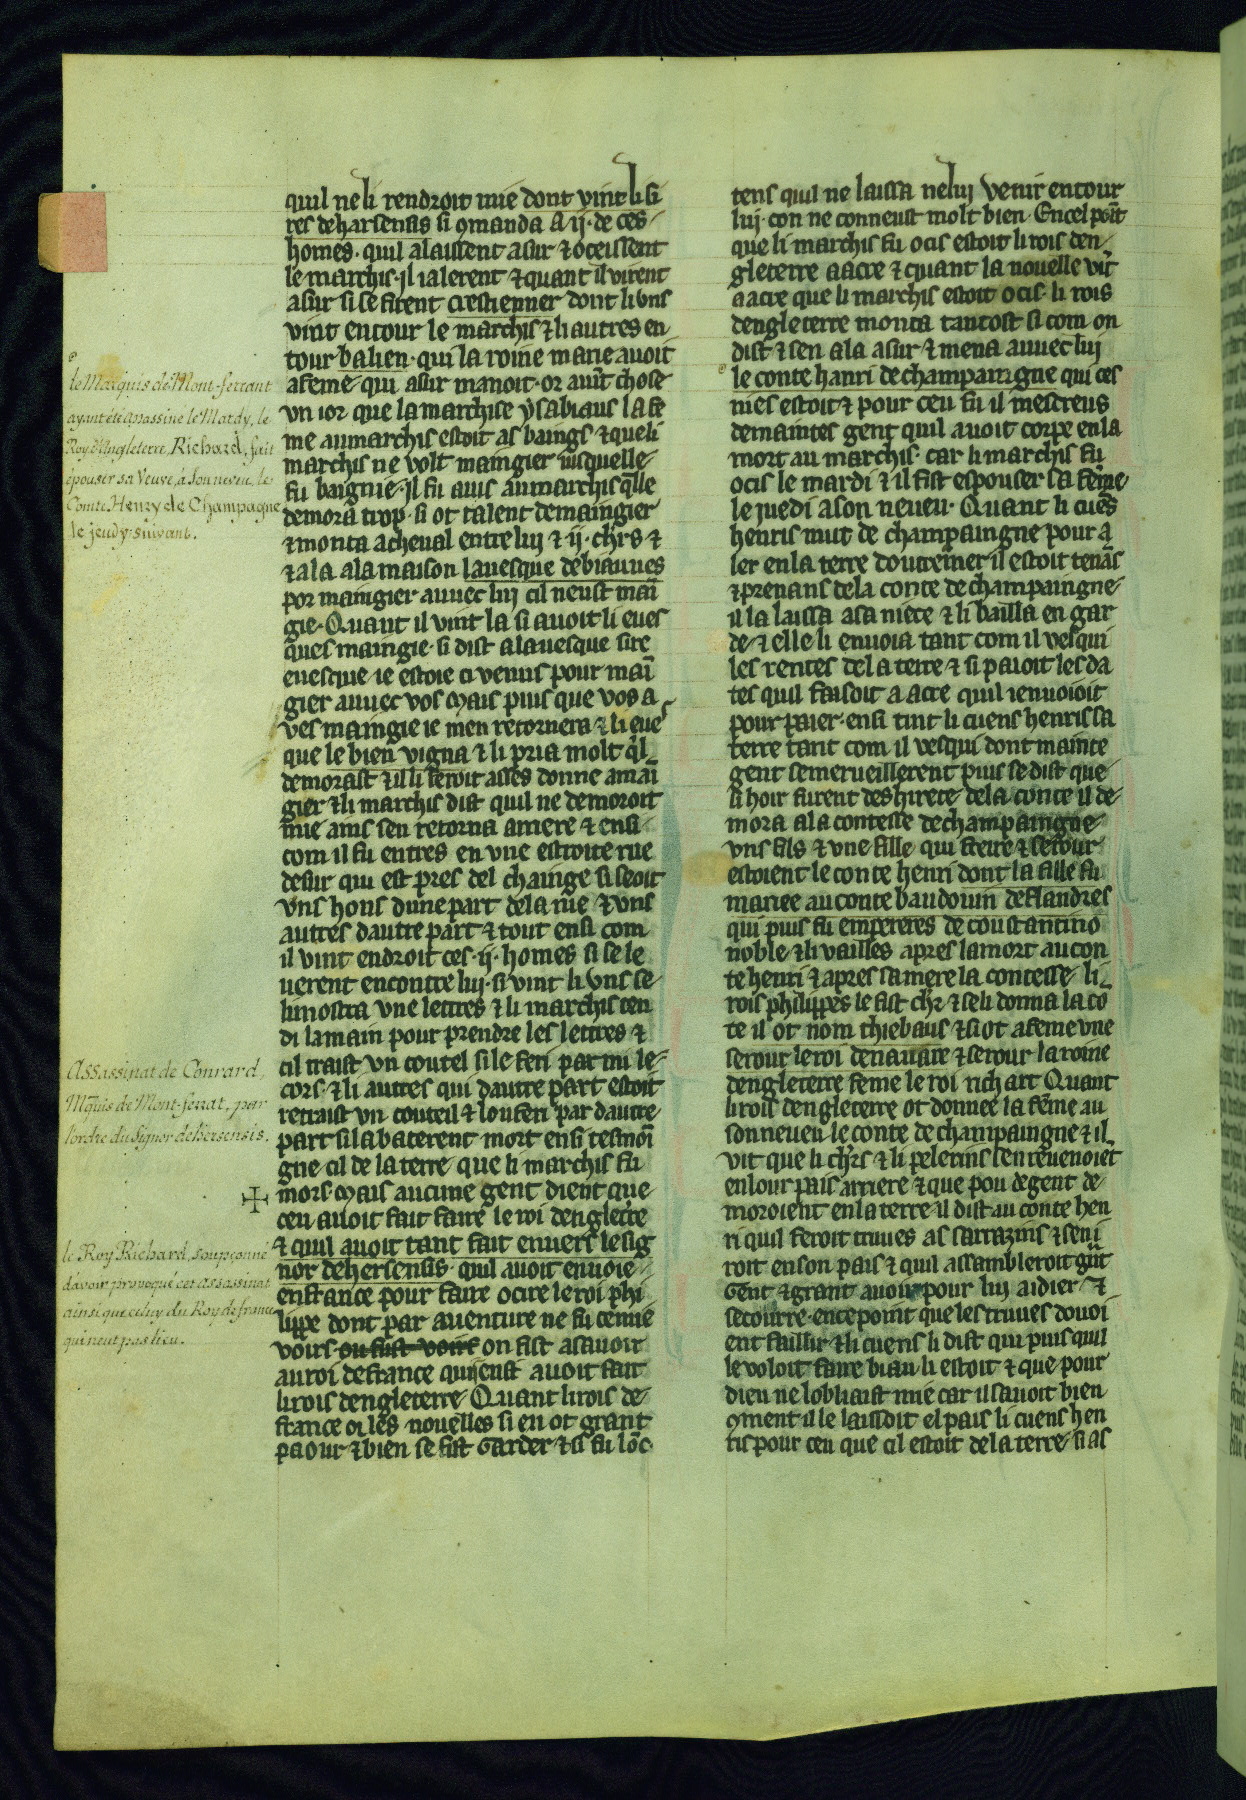 quil ne li rendroit mie dont vint li si
res de harsensis si 9manda a .ij. de ces
homes. quil alaissent a sur & oceissent
le marchis. il i alerent & quant il virent
a sur si se firent crestienner dont li vns
vint entour le marchis & li autres en
tour balien. qui la roine marie auoit
a feme. qui a sur manoit. or auīt chose
vn ior que la marchise ysabiaus la fe
me au marchis estoit as baings & que li
marchis ne volt maingier iusquelle
fu baignie. il fu auis au marchis q̄lle
demora trop. si ot talent de maingier
& monta a cheual entre lui & .ij. chrs &
& ala a la maison lauesque de biauues
por maingier auuec lui cil neust mai
gie. Quant il vint la si auoit li eues
ques maingie. si dist a lauesque sire
euesque ie estoie ci venus pour mai
gier auuec vos Mais puis que vos a
ves maingie ie men retornera & li eues
que le bien vigna & li pria molt q̄l
demorast & il li feroit asses donne a mai
gier & li marchis dist quil ne demoroit
mie ains sen retorna arriere & ensi
com il fu entres en vne estroite rue
de sur qui est pres del chainge si seoit
vns hons dune part de la rue & vns
autres dautre part & tout ensi com
il vint endroit ces .ij. homes si se le
uerent encontre lui. si vint li vns se
li mostra vne lettres & li marchis ten
di la main pour prendre les lettres &
cil traist vn coutel si le feri parmi le
cors. & li autres qui dautre part estoit
retraist vn couteil & lou feri par dautre
part si labaterent mort ensi tesmoi
gne cil de la terre que li marchis fu
mors. Mais aucune gent dient que
ceu auoit fait faire le roi dengleterre
& quil auoit tant fait enuers le sig
nor de hersensis. quil auoit enuoie
en france pour faire ocire le roi phi
lippe dont par auenture ne fu cenme
voirs. ou fust voirs on fist asauoit
au roi de france quijenst auoit fait
li rois dengleterre. Quant li rois de
france oi les nouelles si en ot grant
paour & bien se fist Garder & si fu lōc
tens quil ne laissa nelui venir entour
lui. con ne conneust molt bien. En cel poīt
que li marchis fu ocis estoit li rois den
gleterre a acre & quant la nouelle vīt
a acre que li marchis estoit ocis. li rois
dengleterre monta tantost si com on
dist & sen ala a sur & mena auuec lui
le conte hanri de champaingne qui ces
nies estoit & pour ceu fu il mescreus
de maintes gent quil auoit corpe en la
mort au marchis. car li marchis fu
ocis le mardi & il fist espouser sa feme
le juedi a son neueu. Quant li cuēs
henris mut de champaingne pour a
ler en la terre doutremer il estoit tenās
& prenans de la conte de champaingne
il la laissa a sa niece & li bailla en gar
de. & elle li enuoia tant com il vesqui
les rentes de la terre & si paioit les da
tes quil faisoit a acre quil ienuoioit
pour paier. ensi tint li cuens henris sa
terre tant com il vesqui dont mainte
gent semerueillerent puis se dist que
si hoir furent deshirete de la conte il de
mora a la contesse de champaingne
vns fils & vne fille qui freire & serour
estoient le conte henri dont la fille fu
mariee au conte baudouin de flandres
qui puis fu empereres de coustantino
noble. & li vaissles apres la mort au con
te henri & apres sa mere la contesse. li
rois philippes le fist chr & se li donna la cō
te il ot nom thiebaus & si ot a feme vne
serour le roi de nauare & serour la roine
dengleterre feme le roi richart Quant
li rois dengleterre ot donnee la feme au
son neueu le conte de champaingne & il
vit que li chrs & li pelerins sen reuenoiēt
en lour pais arriere & que pou de gent de
moroient en la terre il dist au conte hen
ri quil feroit truues as sarrazins & sen i
roit en son pais & quil assambleroit grāt
Gent & grant auoir pour lui aidier &
secourre. en ce point que les truues douoi
ent faillir & li cuens li dist qui puis quil
le voloit faire biau li estoit & que pour
dieu ne lobliaist mie car il sauoit bien
9ment il le laissoit el pais li cuens hen
ris pour ceu que cil estoit de la terre. si as
le Marquis de Mont-ferrant
ayant été assassiné le Mardy, le
Roy d'Angleterre, Richard, fait
épouser sa Veuve, à son neveu, le
Comte Henry de Champagne
le jeudy suivant.
Assassinat de Conrard,
Mquis de Mont-ferrat, par
l'ordre du Signor de hersensis.
le Roy Richard, soupçonné
d'avoir provoqué cet assassinat
ainsi que celuy du Roy de france
qui n'eut pas lieu.